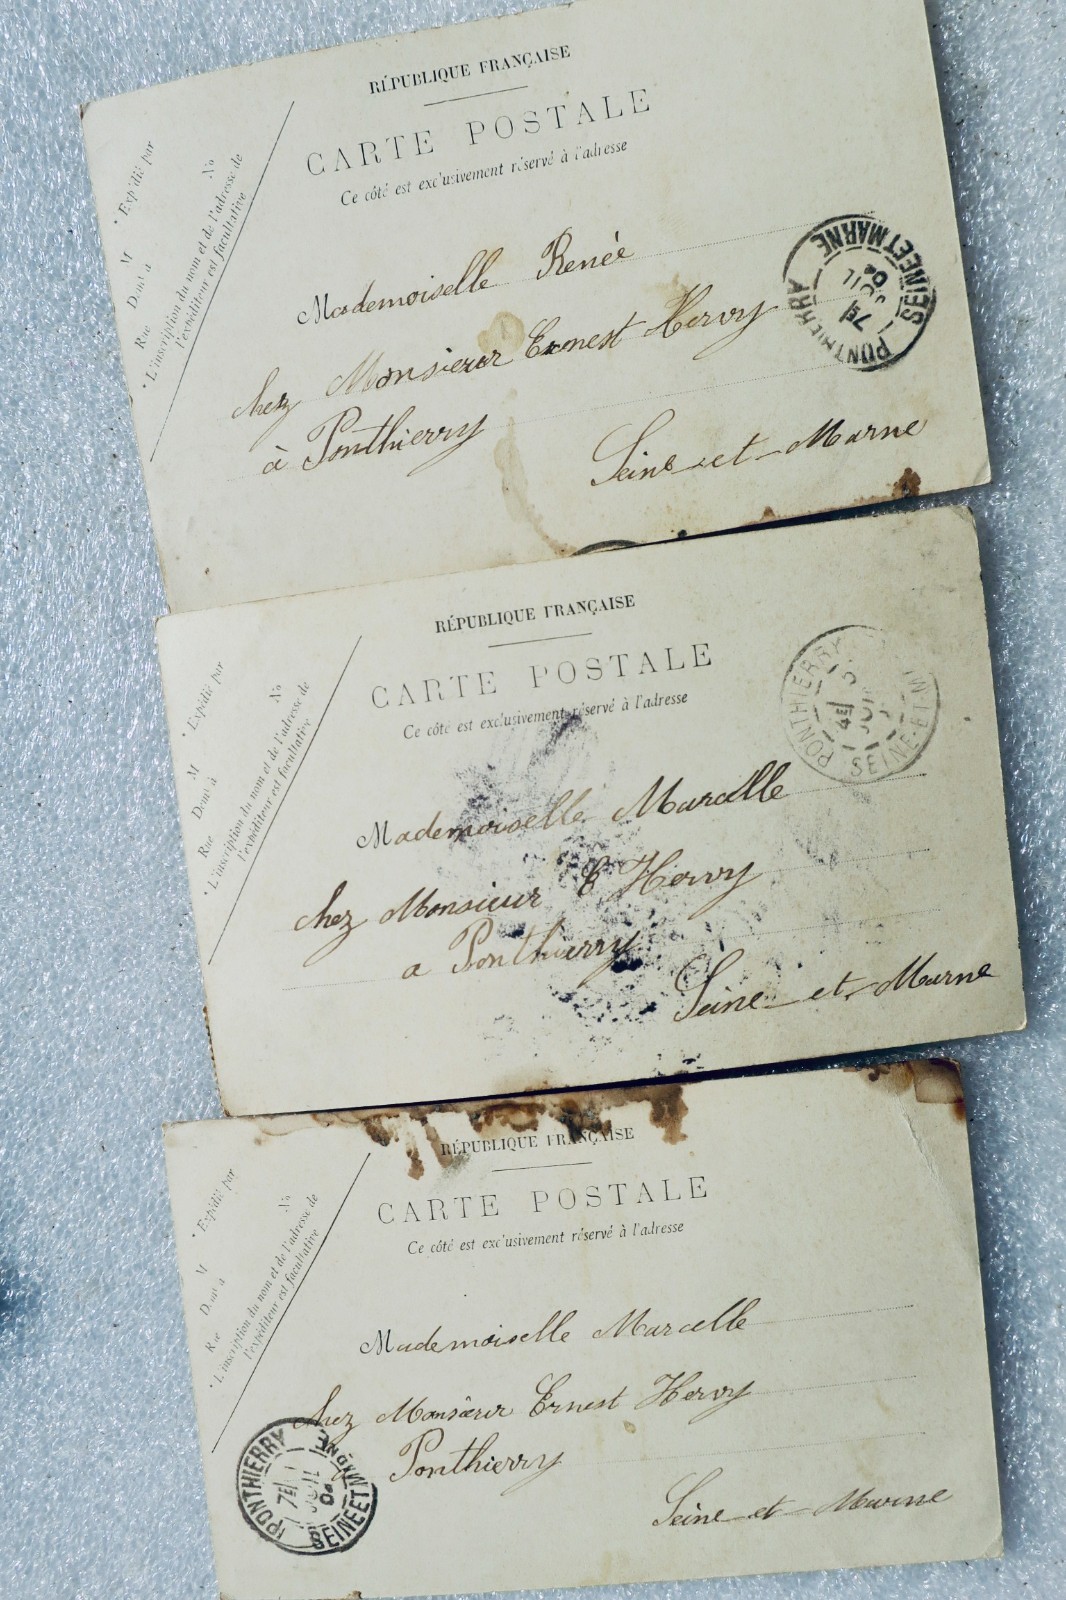 RÉPUBLIQUE FRANÇAISE
CARTE POSTALE
Ce côté est exclusivement réservé à l'adresse
* Expédié par
M
Dem^t à
Rue
No
* L'inscription du nom et de l'adresse de
l'expéditeur est facultative
Mademoiselle Renée
chez Monsieur Ernest Hervy
à Ponthierry
Seine-et-Marne
PONTHIERRY
7E
JUIL
04
SEINE ET MARNE
RÉPUBLIQUE FRANÇAISE
CARTE POSTALE
Ce côté est exclusivement réservé à l'adresse
* Expédié par
M
Dem^t à
Rue
No
* L'inscription du nom et de l'adresse de
l'expéditeur est facultative
Mademoiselle Marcelle
chez Monsieur E Hervy
a Ponthierry
Seine-et-Marne
PONTHIERRY
4E
SEINE-ET-M
RÉPUBLIQUE FRANÇAISE
CARTE POSTALE
Ce côté est exclusivement réservé à l'adresse
* Expédié par
M
Dem^t à
Rue
No
* L'inscription du nom et de l'adresse de
l'expéditeur est facultative
Mademoiselle Marcelle
chez Monsieur Ernest Hervy
à Ponthierry
Seine-et-Marne
PONTHIERRY
7E
JUIL
04
SEINE ET MARNE